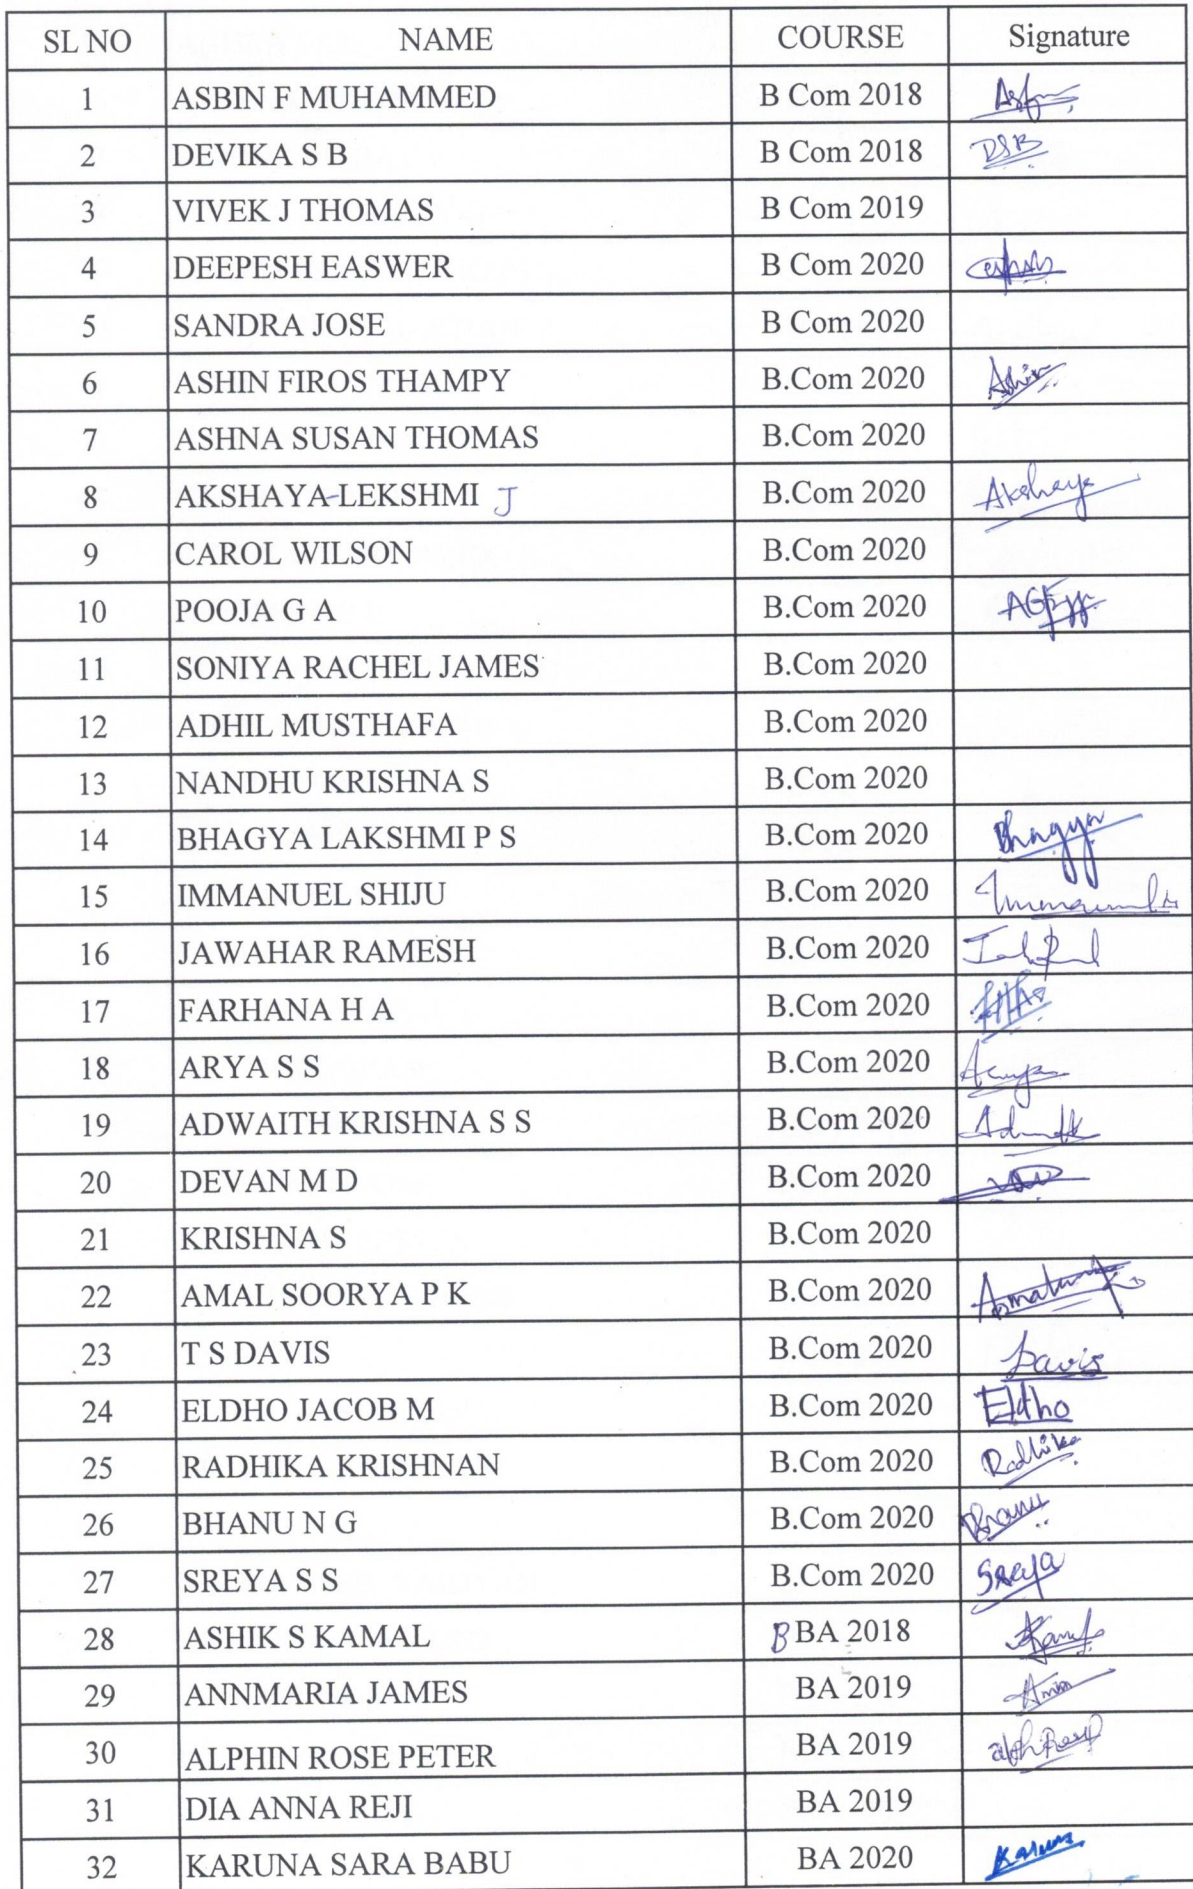 SL NO NAME COURSE Signature
1 ASBIN F MUHAMMED B Com 2018
2 DEVIKA S B B Com 2018 DSB
3 VIVEK J THOMAS B Com 2019
4 DEEPESH EASWER B Com 2020
5 SANDRA JOSE B Com 2020
6 ASHIN FIROS THAMPY B.Com 2020 Ashin
7 ASHNA SUSAN THOMAS B.Com 2020
8 AKSHAYA-LEKSHMI J B.Com 2020 Akshaya
9 CAROL WILSON B.Com 2020
10 POOJA G A B.Com 2020
11 SONIYA RACHEL JAMES B.Com 2020
12 ADHIL MUSTHAFA B.Com 2020
13 NANDHU KRISHNA S B.Com 2020
14 BHAGYA LAKSHMI P S B.Com 2020 Bhagya
15 IMMANUEL SHIJU B.Com 2020
16 JAWAHAR RAMESH B.Com 2020
17 FARHANA H A B.Com 2020
18 ARYA S S B.Com 2020 Arya
19 ADWAITH KRISHNA S S B.Com 2020
20 DEVAN M D B.Com 2020
21 KRISHNA S B.Com 2020
22 AMAL SOORYA P K B.Com 2020
23 T S DAVIS B.Com 2020 Davis
24 ELDHO JACOB M B.Com 2020 Eldho
25 RADHIKA KRISHNAN B.Com 2020 Radhika
26 BHANU N G B.Com 2020 Bhanu
27 SREYA S S B.Com 2020 Sreya
28 ASHIK S KAMAL BBA 2018
29 ANNMARIA JAMES BA 2019
30 ALPHIN ROSE PETER BA 2019
31 DIA ANNA REJI BA 2019
32 KARUNA SARA BABU BA 2020 Karuna